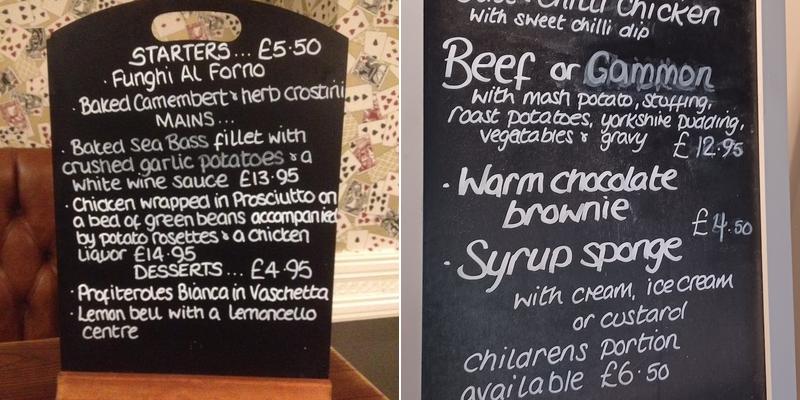 STARTERS... £5·50
· Funghi Al Forno
· Baked Camembert & herb crostini
MAINS...
· Baked Sea Bass fillet with
crushed garlic potatoes & a
white wine sauce £13·95
· Chicken wrapped in Prosciutto on
a bed of green beans accompanied
by potato rosettes & a chicken
liquor £14·95
DESSERTS... £4·95
· Profiteroles Bianca in Vaschetta
· Lemon bell with a lemoncello
centre
Chilli Chicken
with sweet chilli dip
Beef or Gammon
with mash potato, stuffing,
roast potatoes, yorkshire pudding,
vegetables & gravy £12·95
· Warm chocolate
brownie
£4.50
· Syrup sponge
with cream, ice cream
or custard
childrens portion
available £6·50